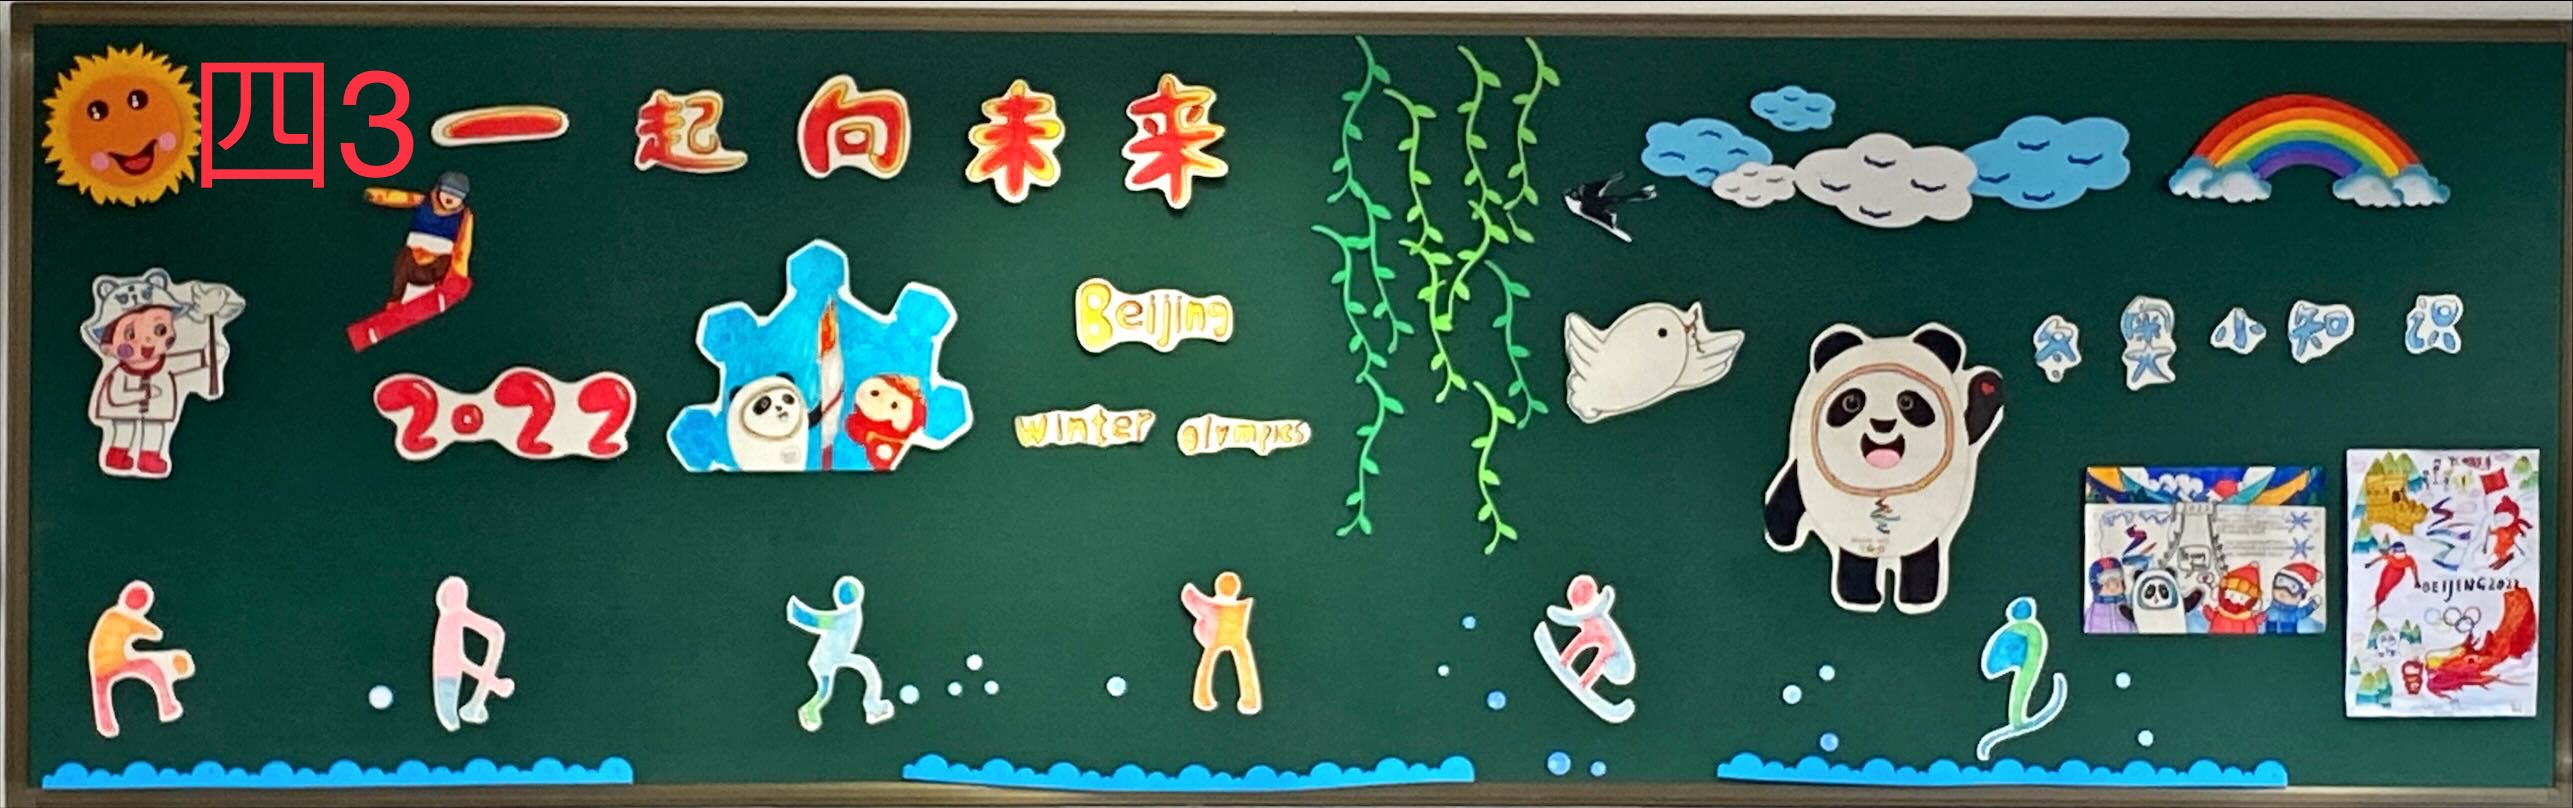 四3
一起向未来
Beijing
2022
winter olympics
冬奥小知识
BEIJING2022